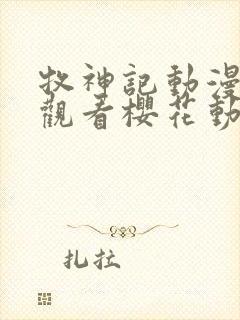 牧神記動漫
觀看櫻花動
扎拉